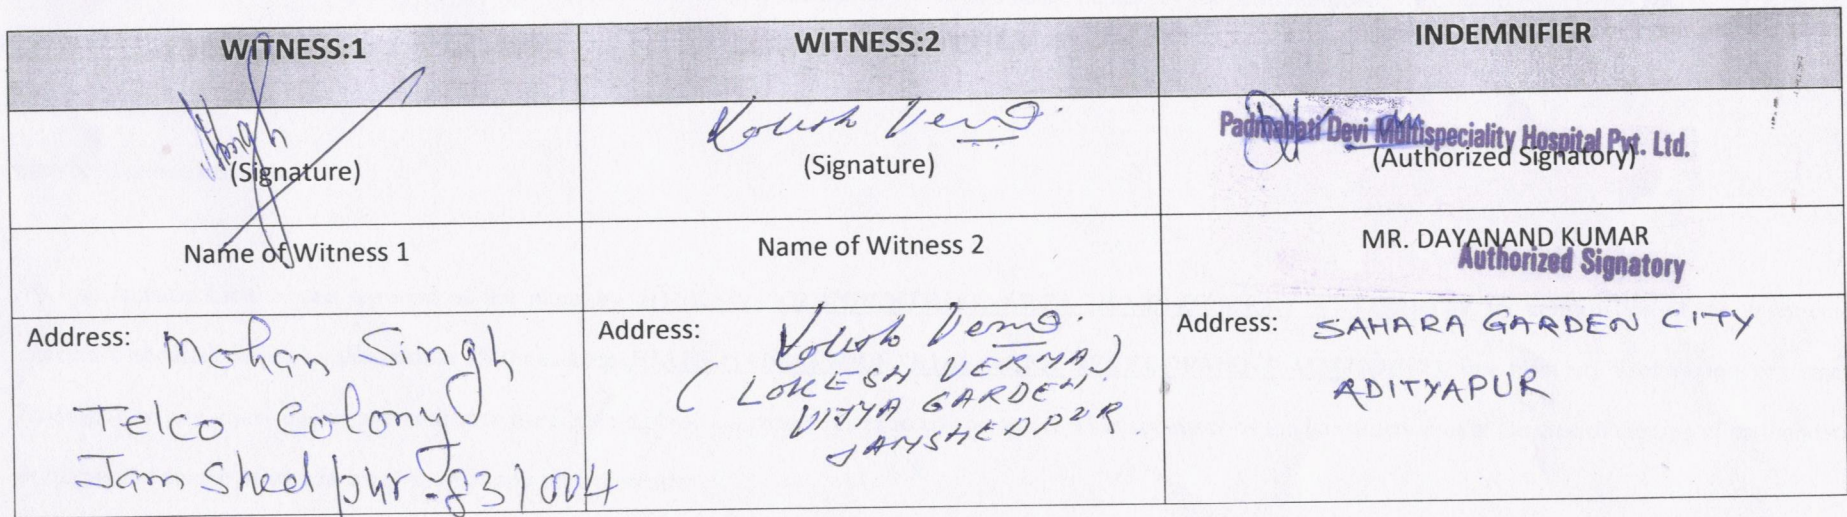 WITNESS:1
WITNESS:2
INDEMNIFIER
Singh
Lokesh Verma
Padmabati Devi Multispeciality Hospital Pvt. Ltd.
(Signature)
(Signature)
(Authorized Signatory)
Name of Witness 1
Name of Witness 2
MR. DAYANAND KUMAR
Authorized Signatory
Address: Mohan Singh
Telco Colony
Jamshedpur-831004
Address: Lokesh Verma
(LOKESH VERMA)
VIJYA GARDEN
JAMSHEDPUR
Address: SAHARA GARDEN CITY
ADITYAPUR